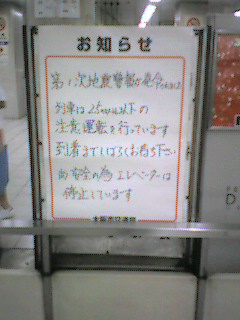 お知らせ
第1次地震警報が発令されました
列車は25km以下の
注意運転を行っています
到着までしばらくお待ち下さい
尚安全の為エレベーターは
停止しています
大阪市交通局